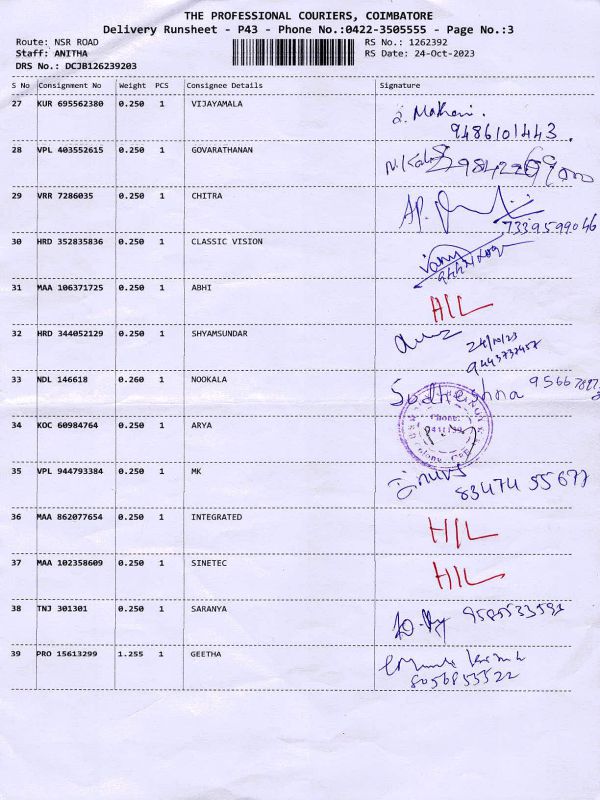 THE PROFESSIONAL COURIERS, COIMBATORE
Delivery Runsheet - P43 - Phone No.:0422-3505555 - Page No.:3
Route: NSR ROAD RS No.: 1262392
Staff: ANITHA RS Date: 24-Oct-2023
DRS No.: DCJB126239203
S No Consignment No Weight PCS Consignee Details Signature
27 KUR 695562380 0.250 1 VIJAYAMALA
9486101443.
28 VPL 403552615 0.250 1 GOVARATHANAN
29 VRR 7286035 0.250 1 CHITRA
7339599046
30 HRD 352835836 0.250 1 CLASSIC VISION
31 MAA 106371725 0.250 1 ABHI H/L
32 HRD 344052129 0.250 1 SHYAMSUNDAR
24/10/23
33 NDL 146618 0.260 1 NOOKALA
Phone:
34 KOC 60984764 0.250 1 ARYA
35 VPL 944793384 0.250 1 MK
83474 55677
36 MAA 862077654 0.250 1 INTEGRATED H/L
37 MAA 102358609 0.250 1 SINETEC H/L
38 TNJ 301301 0.250 1 SARANYA
39 PRO 15613299 1.255 1 GEETHA
8056853522